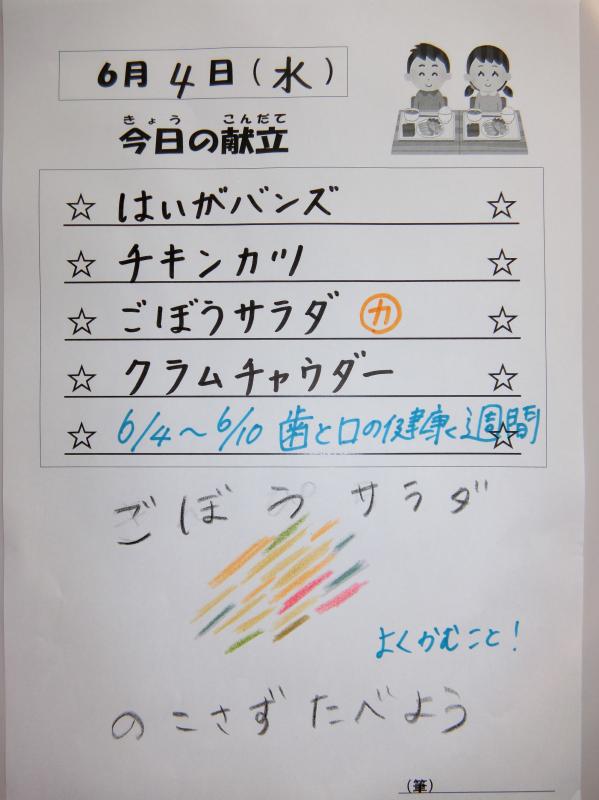 6月4日(水)
きょう こんだて
今日の献立
☆ はいがバンズ ☆
☆ チキンカツ ☆
☆ ごぼうサラダ カ ☆
☆ クラムチャウダー ☆
☆ 6/4～6/10 歯と口の健康週間 ☆
ごぼうサラダ
よくかむこと!
のこさずたべよう
(筆)